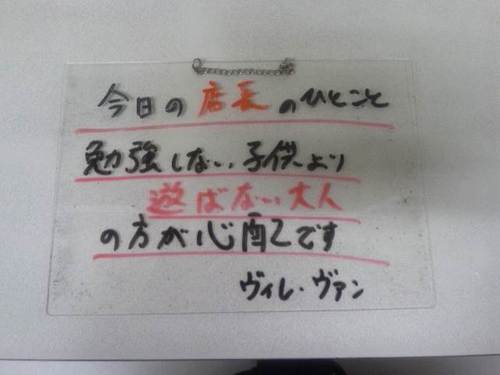 今日の店長のひとこと
勉強しない子供より
遊ばない大人
の方が心配です
ヴィレ・ヴァン